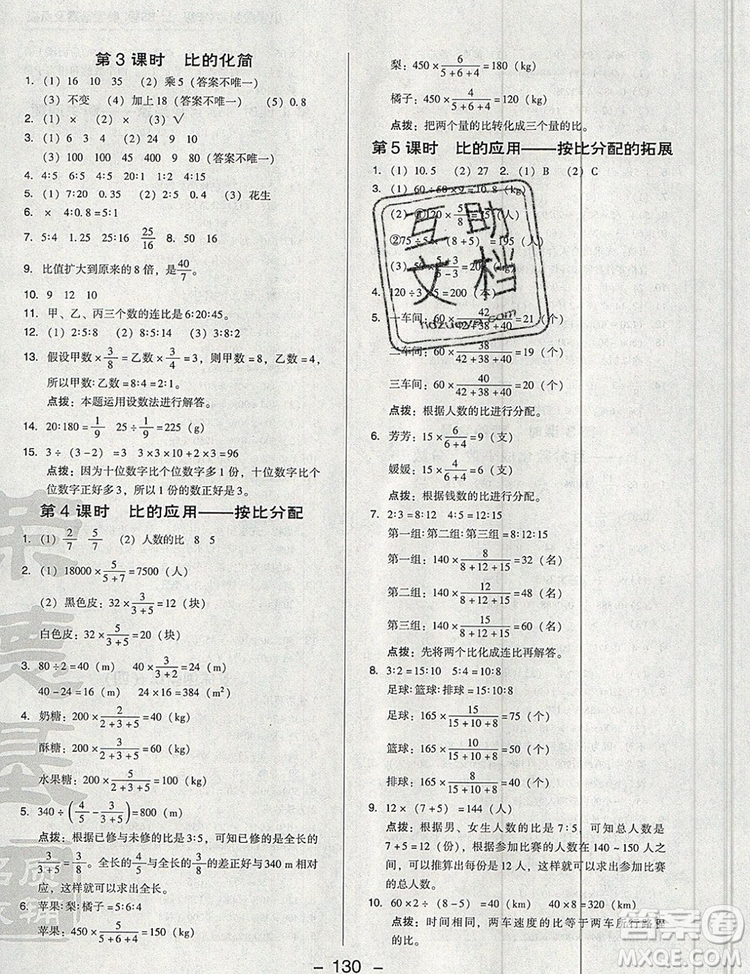 第3课时 比的化简
1. (1) 16 10 35 (2) 乘5 (答案不唯一)
(3) 不变 (4) 加上18 (答案不唯一) (5) 0.8
2. (1) × (2) × (3) ✓
3. (1) 6 3 4 (2) 24 9 10
(3) 100 400 90 (4) 100 80 9
5. (1) 7:20 (2) 0.35 (3) 花生
6. × 4:0.8=5:1
7. 5:4 1.25 25:16 25/16 8. 50 16
9. 比值扩大到原来的8倍,是40/7。
10. 9 12 10
11. 甲、乙、丙三个数的连比是6:20:45。
12. (1) 2:5:8 (2) 2:5:8
13. 假设甲数×3/8=乙数×3/4=3,
所以甲数:乙数=8:4=2:1。
点拨:本题运用设数法进行解答。
14. 20:180=1/9 25÷1/9=225 (g)
15. 3÷(3-2)=3 3×2=6 3×10+2×3=96
点拨:因为十位数字比个位数字多1份,十位数
字正好多3,所以1份的数正好是3。
第4课时 比的应用——按比分配
1. (1) 2/7 5/7 (2) 人数的比 8 5
2. (1) 18000×5/(5+7)=7500 (人)
(2) 黑色皮:32×3/(3+5)=12 (块)
白色皮:32×5/(3+5)=20 (块)
3. 80÷2=40 (m) 40×3/(3+2)=24 (m)
40-24=16 (m) 24×16=384 (m²)
4. 奶糖:200×2/(2+3+5)=40 (kg)
酥糖:200×3/(2+3+5)=60 (kg)
水果糖:200×5/(2+3+5)=100 (kg)
5. 340÷(4/5-3/(3+5))=800 (m)
点拨:根据已修与未修的比是3:5,可知已修是全长的
3/8。全长的4/5与全长的3/8的差正好与340 m相
对应,这样就可以求出全长。
6. 苹果:梨:橘子=5:6:4
苹果:450×5/(5+6+4)=150 (kg)
梨:450×6/(5+6+4)=180 (kg)
橘子:450×4/(5+6+4)=120 (kg)
点拨:把两个量的比转化成三个量的比。
第5课时 比的应用——按比分配的拓展
1. (1) 10.5 (2) 27 2. (1) B (2) C
3. (1) 60÷50×9=10.8 (kg)
(2) ①120×5/8=75 (人)
②75÷5×(8+5)=195 (人)
(3) 50 (kg)
4. 120÷3×5=200 (本)
5. 一车间:60×42/(42+38+40)=21 (个)
二车间:60×38/(42+38+40)=19 (个)
三车间:60×40/(42+38+40)=20 (个)
点拨:根据人数的比进行分配。
6. 芳芳:15×6/(6+4)=9 (支)
媛媛:15×4/(6+4)=6 (支)
点拨:根据钱数的比进行分配。
7. 2:3=8:12 4:5=12:15
第一组:第二组:第三组=8:12:15
第一组:140×8/(8+12+15)=32 (名)
第二组:140×12/(8+12+15)=48 (名)
第三组:140×15/(8+12+15)=60 (名)
点拨:先将两个比化成连比再解答。
8. 3:2=15:10 5:4=10:8
足球:篮球:排球=15:10:8
足球:165×15/(15+10+8)=75 (个)
篮球:165×10/(15+10+8)=50 (个)
排球:165×8/(15+10+8)=40 (个)
9. 12×(7+5)=144 (人)
点拨:根据男、女生人数的比是7:5,可知总人数是
7+5=12(份),根据参加比赛的人数在140~150人
之间,可以推算出每份是12人,这样可以求出参加比赛
的总人数。
10. 60×2÷(9-7)=60 (km) 60×9=540 (km)
点拨:时间相同,两车速度的比等于两车所行路程
的比。
- 130 -
互助
文档
hdzuoye.com
答案圈
MXQE.COM